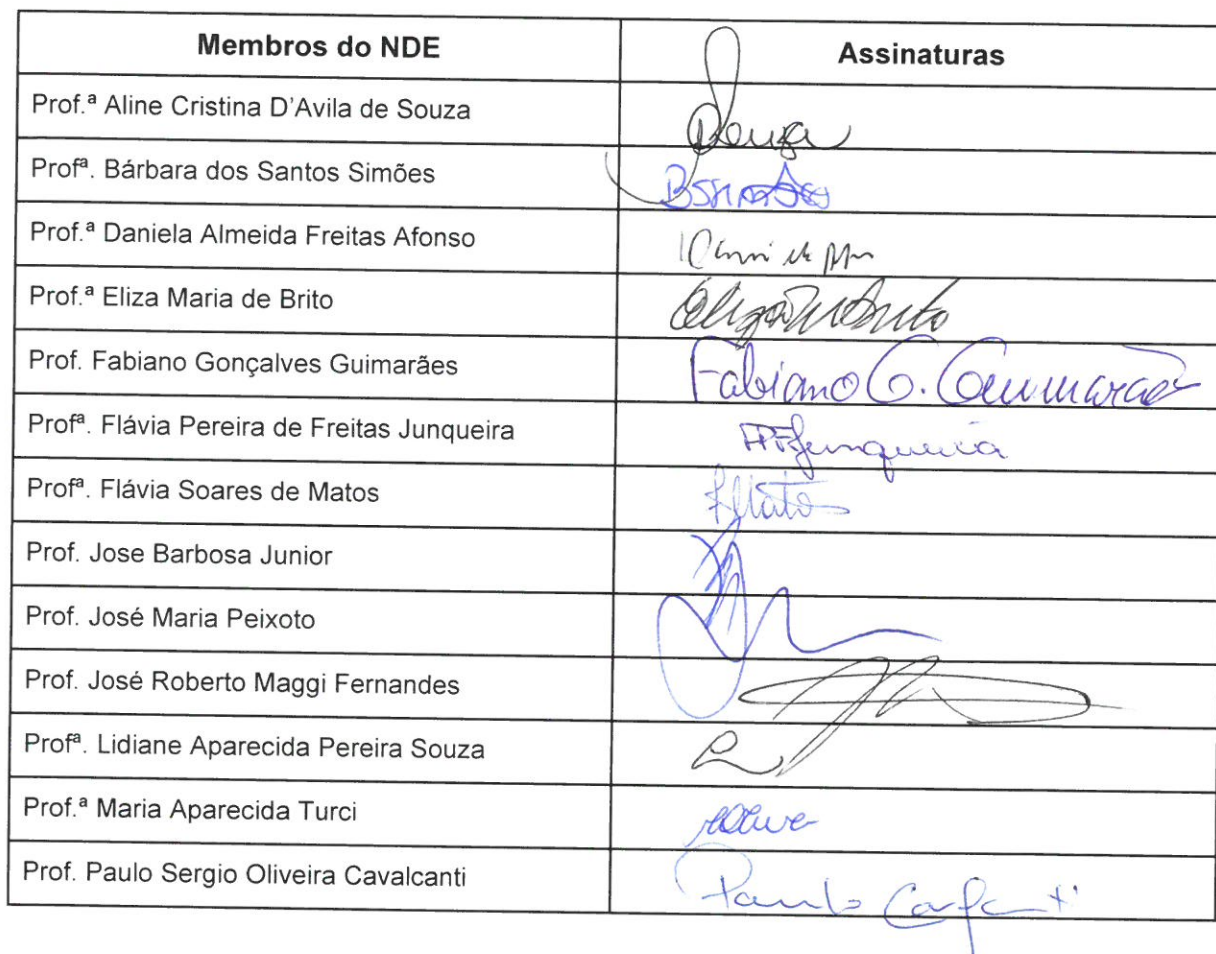 Membros do NDE Assinaturas
Prof.ª Aline Cristina D'Avila de Souza Souza
Profª. Bárbara dos Santos Simões
Prof.ª Daniela Almeida Freitas Afonso
Prof.ª Eliza Maria de Brito
Prof. Fabiano Gonçalves Guimarães Fabiano G. Guimarães
Profª. Flávia Pereira de Freitas Junqueira FPFJunqueira
Profª. Flávia Soares de Matos
Prof. Jose Barbosa Junior
Prof. José Maria Peixoto
Prof. José Roberto Maggi Fernandes
Profª. Lidiane Aparecida Pereira Souza
Prof.ª Maria Aparecida Turci
Prof. Paulo Sergio Oliveira Cavalcanti Paulo